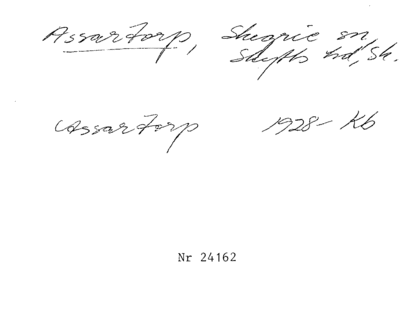 Assartorp, Skegrie sn,
Skytts hd, Sk.
Assartorp 1928- Kb
Nr 24162